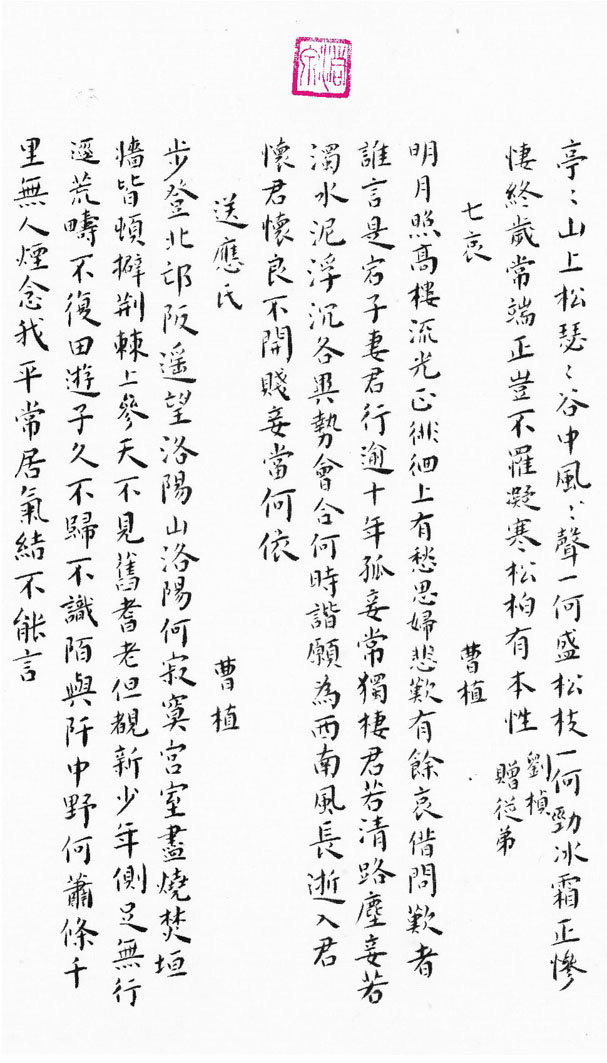 亭〻山上松瑟〻谷中風〻聲一何盛松枝一何勁冰霜正慘
悽終歲常端正豈不罹凝寒松柏有本性
劉楨
贈從弟
七哀 曹植
明月照高樓流光正徘徊上有愁思婦悲歎有餘哀借問歎者
誰言是宕子妻君行逾十年孤妾常獨棲君若清路塵妾若
濁水泥浮沉各異勢會合何時諧願為西南風長逝入君
懷君懷良不開賤妾當何依
送應氏 曹植
步登北邙阪遥望洛陽山洛陽何寂寞宮室盡燒焚垣
牆皆頓擗荊棘上參天不見舊耆老但覩新少年側足無行
逕荒疇不復田遊子久不歸不識陌與阡中野何蕭條千
里無人煙念我平常居氣結不能言